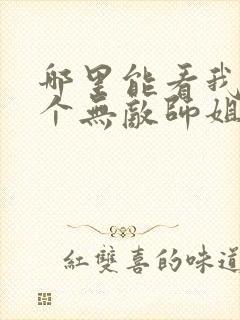 哪里能看我
个無敵師姐
紅雙喜的味道